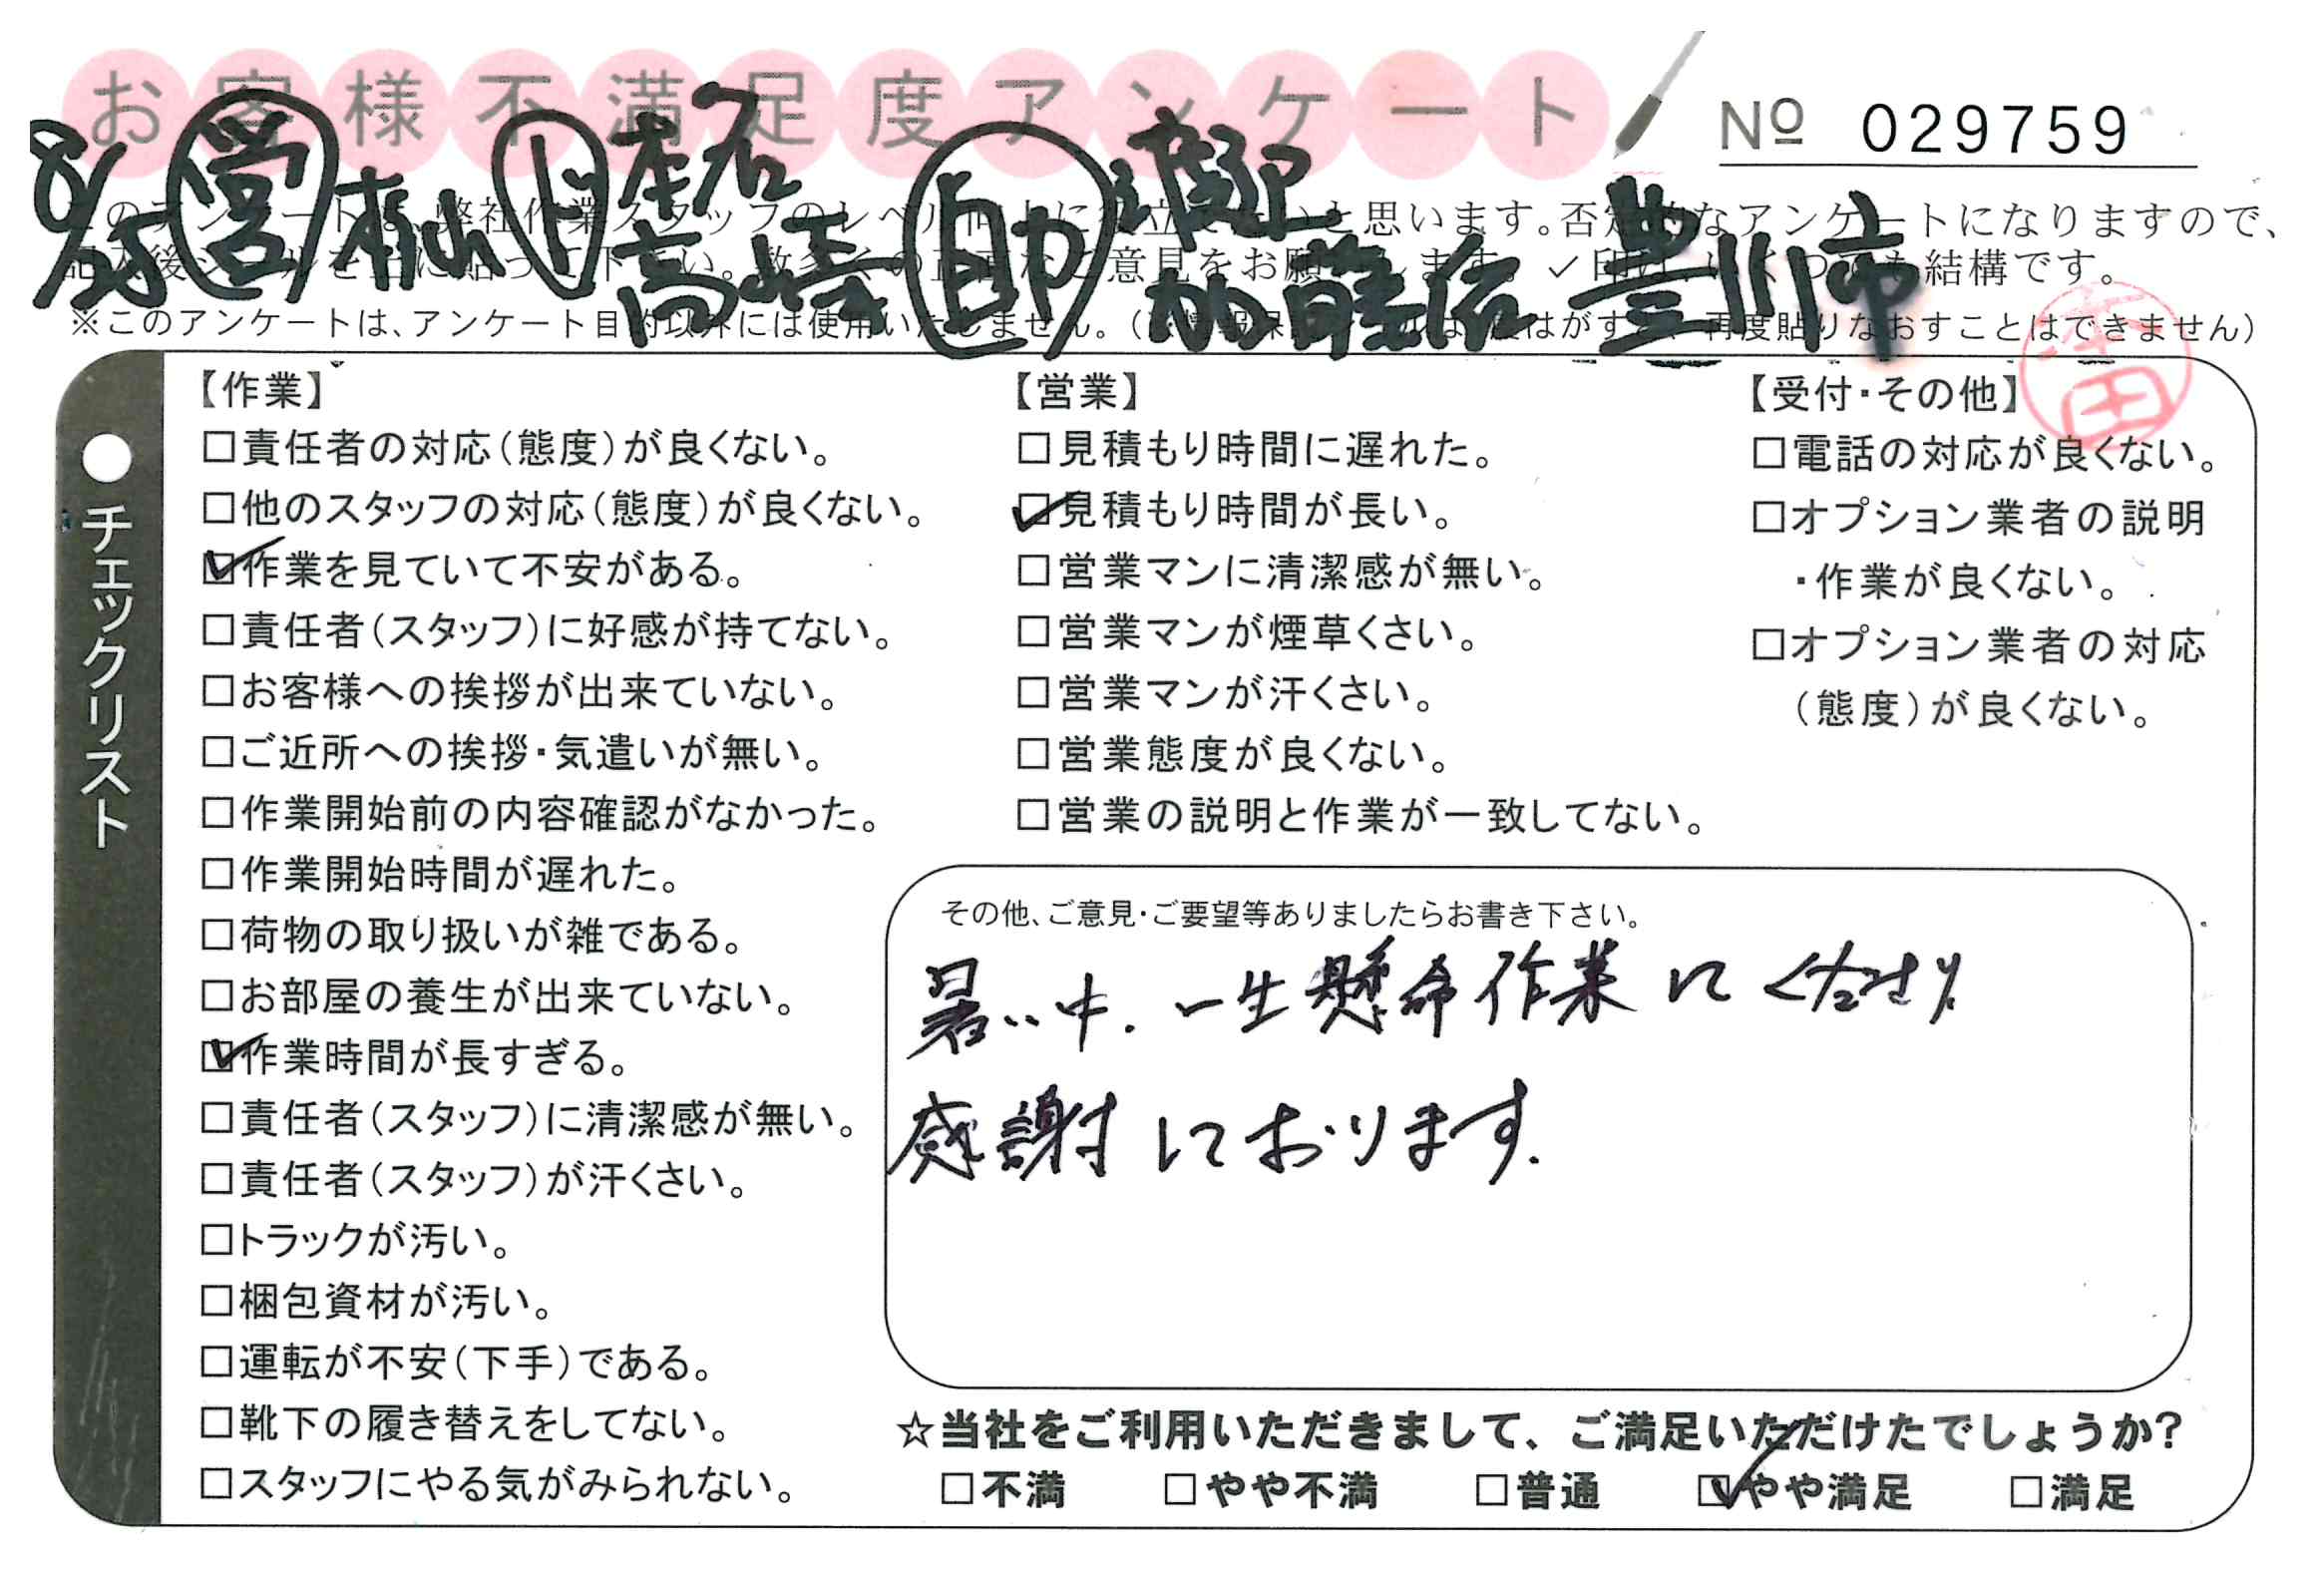 お客様不満足度アンケート
Nº 029759
8/25 営 杉山 ト 本名 高崎 助 加藤佑 豊川市
このアンケートは、弊社作業スタッフのレベル向上に役立てたいと思います。否定的なアンケートになりますので、
記入後シールを上に貼って下さい。数多くの正直なご意見をお願いします。✓印はいくつでも結構です。
※このアンケートは、アンケート目的以外には使用いたしません。(※情報保護シールは一度はがすと、再度貼りなおすことはできません)
●チェックリスト
【作業】
□責任者の対応(態度)が良くない。
□他のスタッフの対応(態度)が良くない。
☑作業を見ていて不安がある。
□責任者(スタッフ)に好感が持てない。
□お客様への挨拶が出来ていない。
□ご近所への挨拶・気遣いが無い。
□作業開始前の内容確認がなかった。
□作業開始時間が遅れた。
□荷物の取り扱いが雑である。
□お部屋の養生が出来ていない。
☑作業時間が長すぎる。
□責任者(スタッフ)に清潔感が無い。
□責任者(スタッフ)が汗くさい。
□トラックが汚い。
□梱包資材が汚い。
□運転が不安(下手)である。
□靴下の履き替えをしてない。
□スタッフにやる気がみられない。
【営業】
□見積もり時間に遅れた。
☑見積もり時間が長い。
□営業マンに清潔感が無い。
□営業マンが煙草くさい。
□営業マンが汗くさい。
□営業態度が良くない。
□営業の説明と作業が一致してない。
【受付・その他】
□電話の対応が良くない。
□オプション業者の説明
・作業が良くない。
□オプション業者の対応
(態度)が良くない。
その他、ご意見・ご要望等ありましたらお書き下さい。
暑い中、一生懸命作業して くださり
感謝しております。
☆当社をご利用いただきまして、ご満足いただけたでしょうか?
□不満 □やや不満 □普通 ☑やや満足 □満足